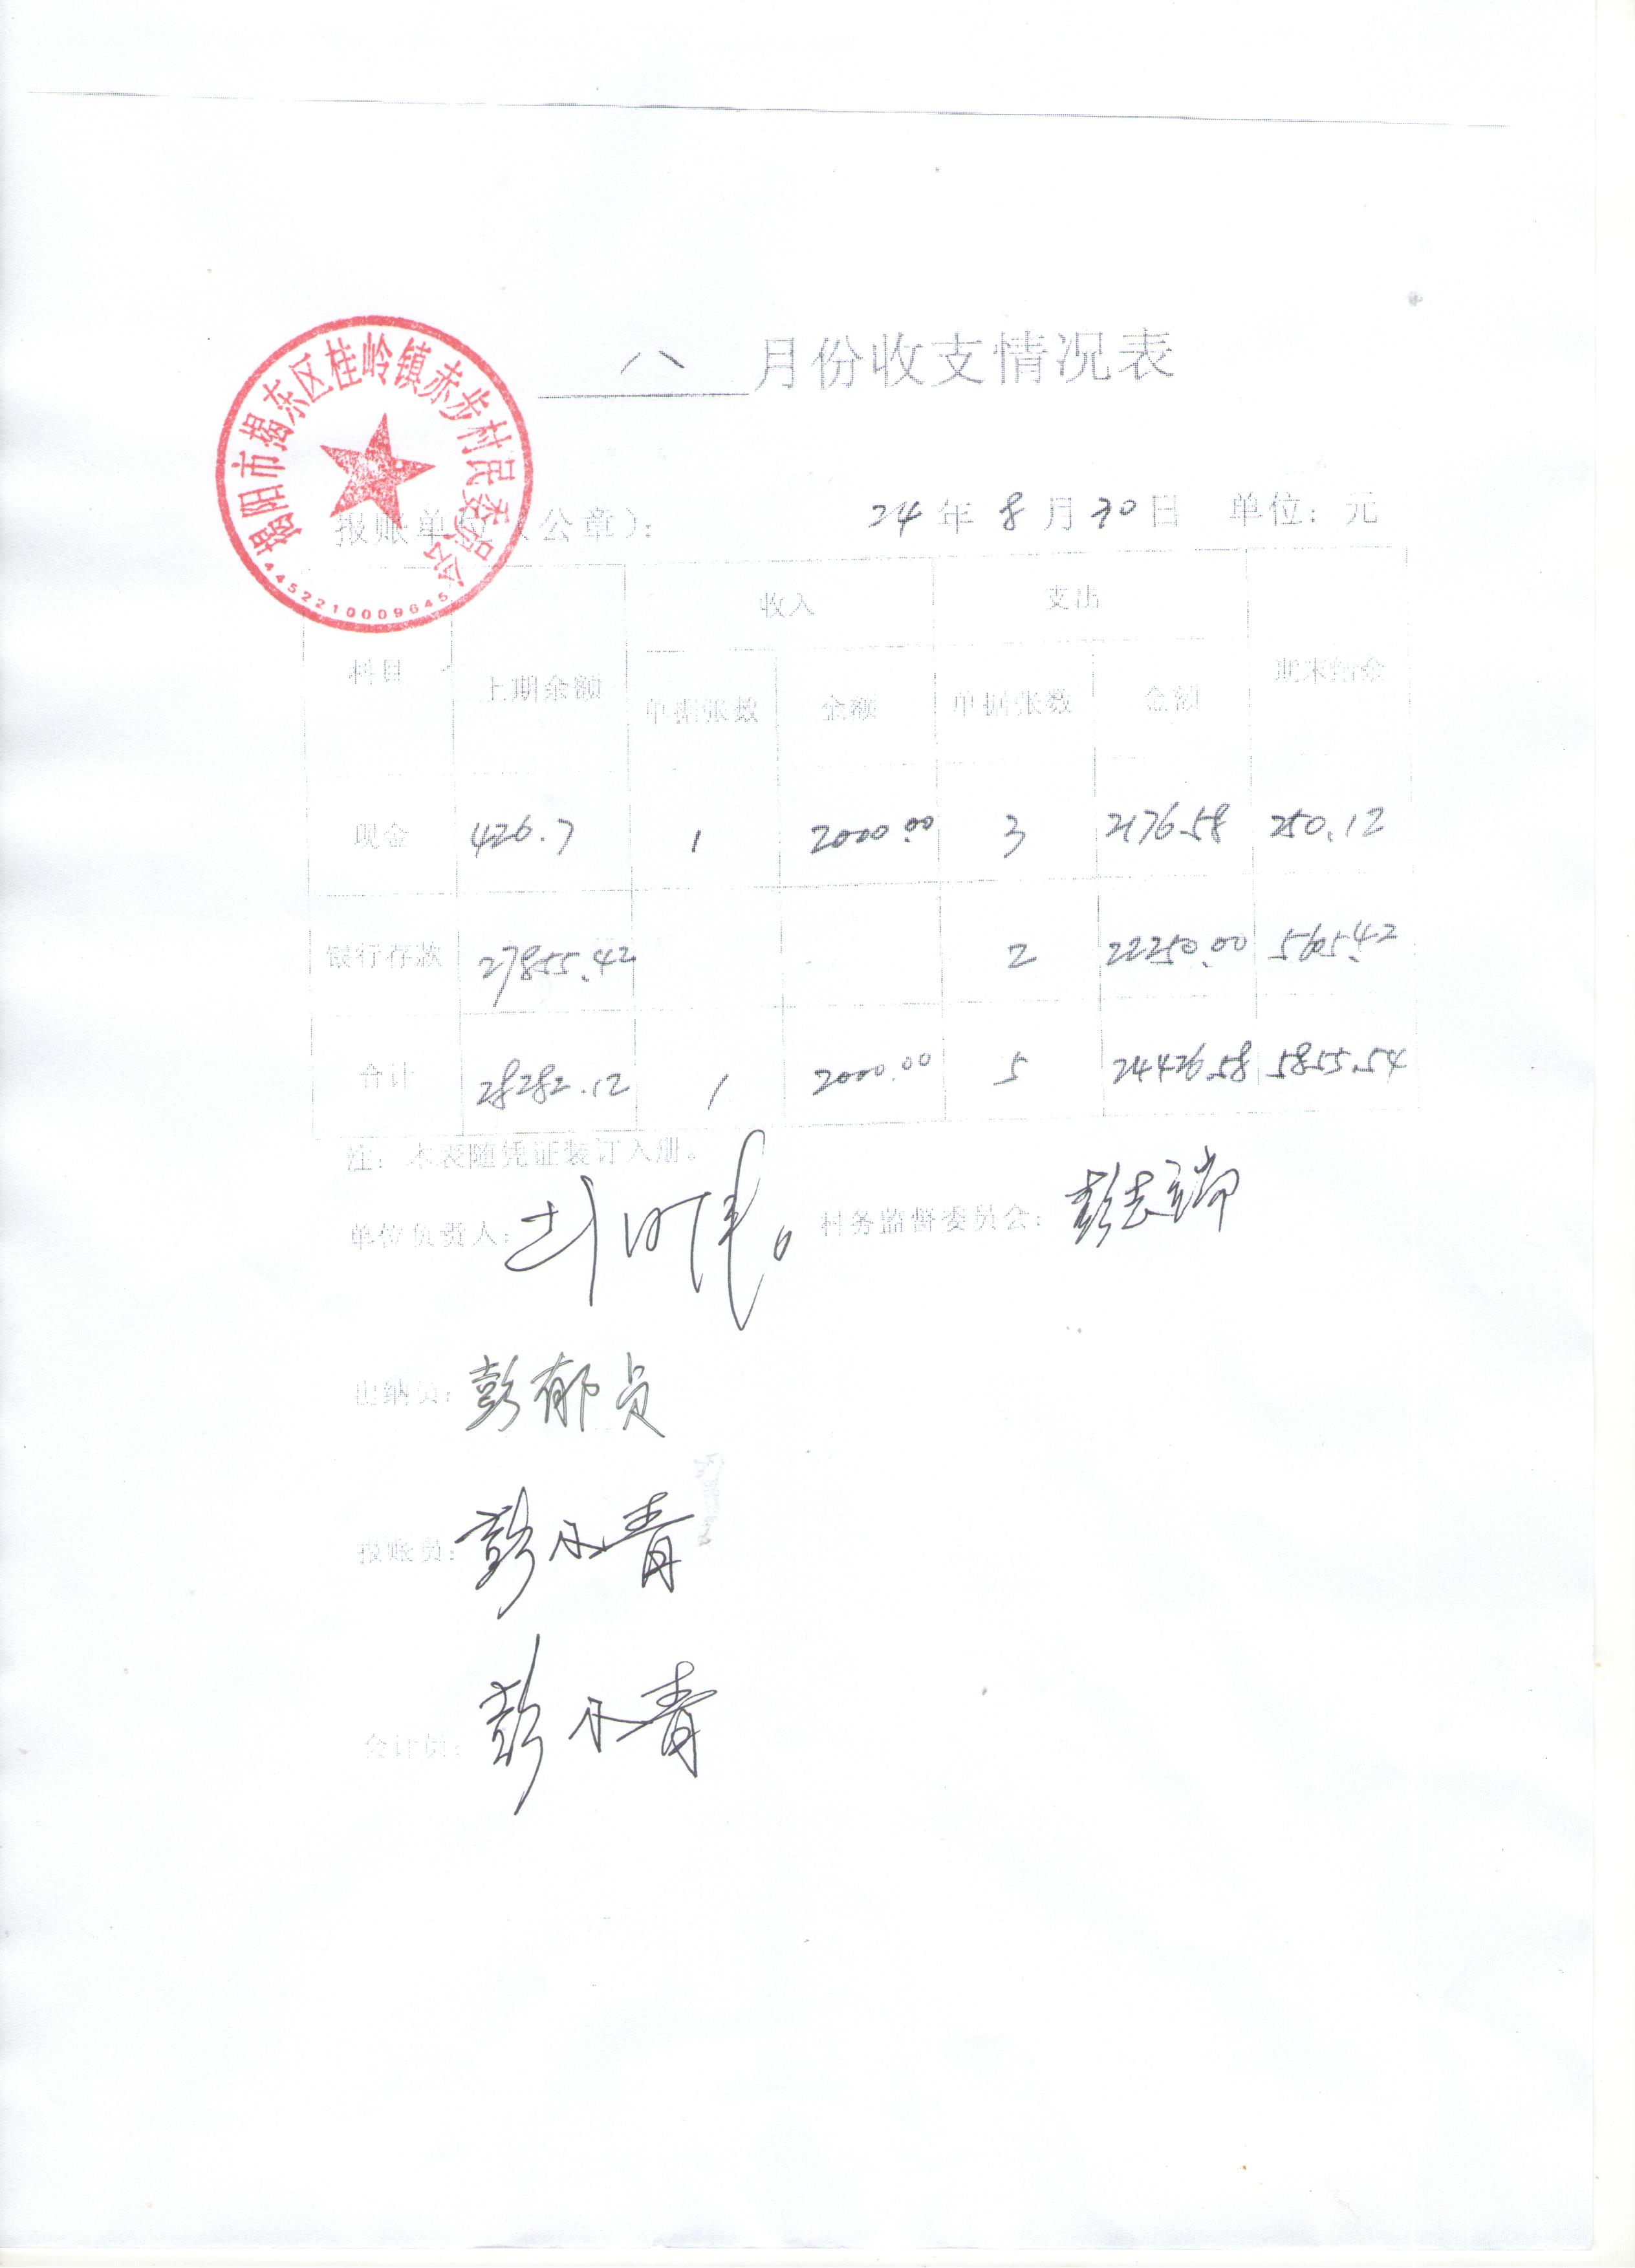 八 月份收支情况表
揭阳市揭东区桂岭镇赤步村民委员会
4452210009645
报账单位（公章）： 24 年 8 月 30 日 单位：元
科目 上期余额 收入 支出 期末结余
单据张数 金额 单据张数 金额
现金 426.7 1 2000.00 3 2176.58 250.12
银行存款 27855.42 2 22250.00 5605.42
合计 28282.12 1 2000.00 5 24426.58 5855.54
注：本表随凭证装订入册。
单位负责人： 村务监督委员会：彭志端
出纳员：彭郁员
报账员：彭小青
会计员：彭小青